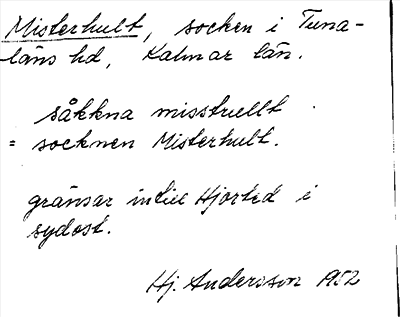 Misterhult, socken i Tuna-
läns hd, Kalmar län.
såkkna misstrullt
= socknen Misterhult.
gränsar intill Hjorted i
sydost.
Hj. Andersson 1952